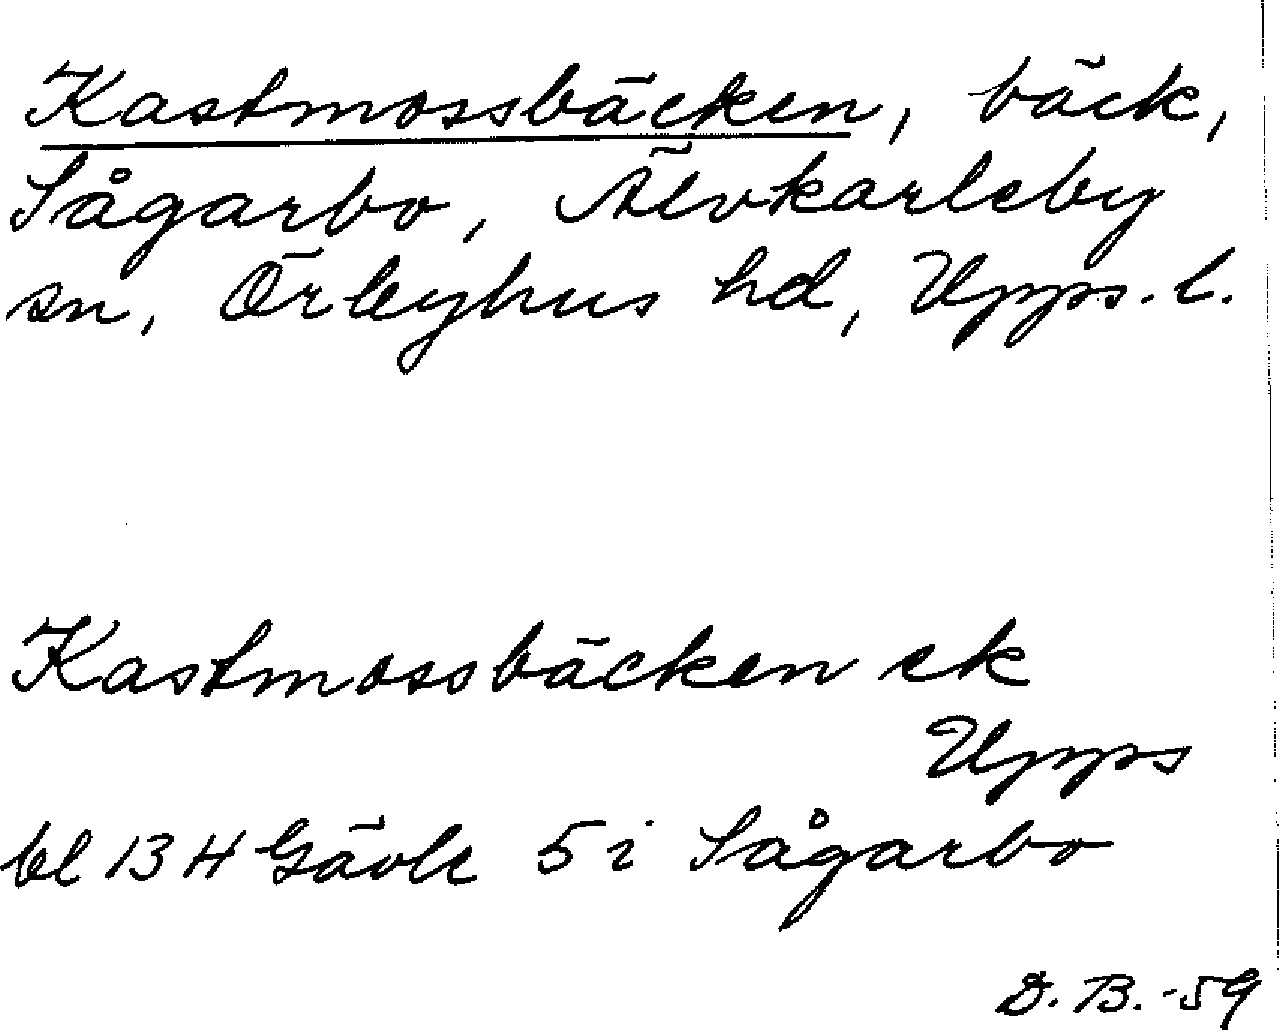 Kastmossbäcken, bäck,
Sågarbo, Älvkarleby
sn, Örbyhus hd, Upps. l.
Kastmossbäcken ek
Upps
bl 13 H Gävle 5 i Sågarbo
D. B. -59